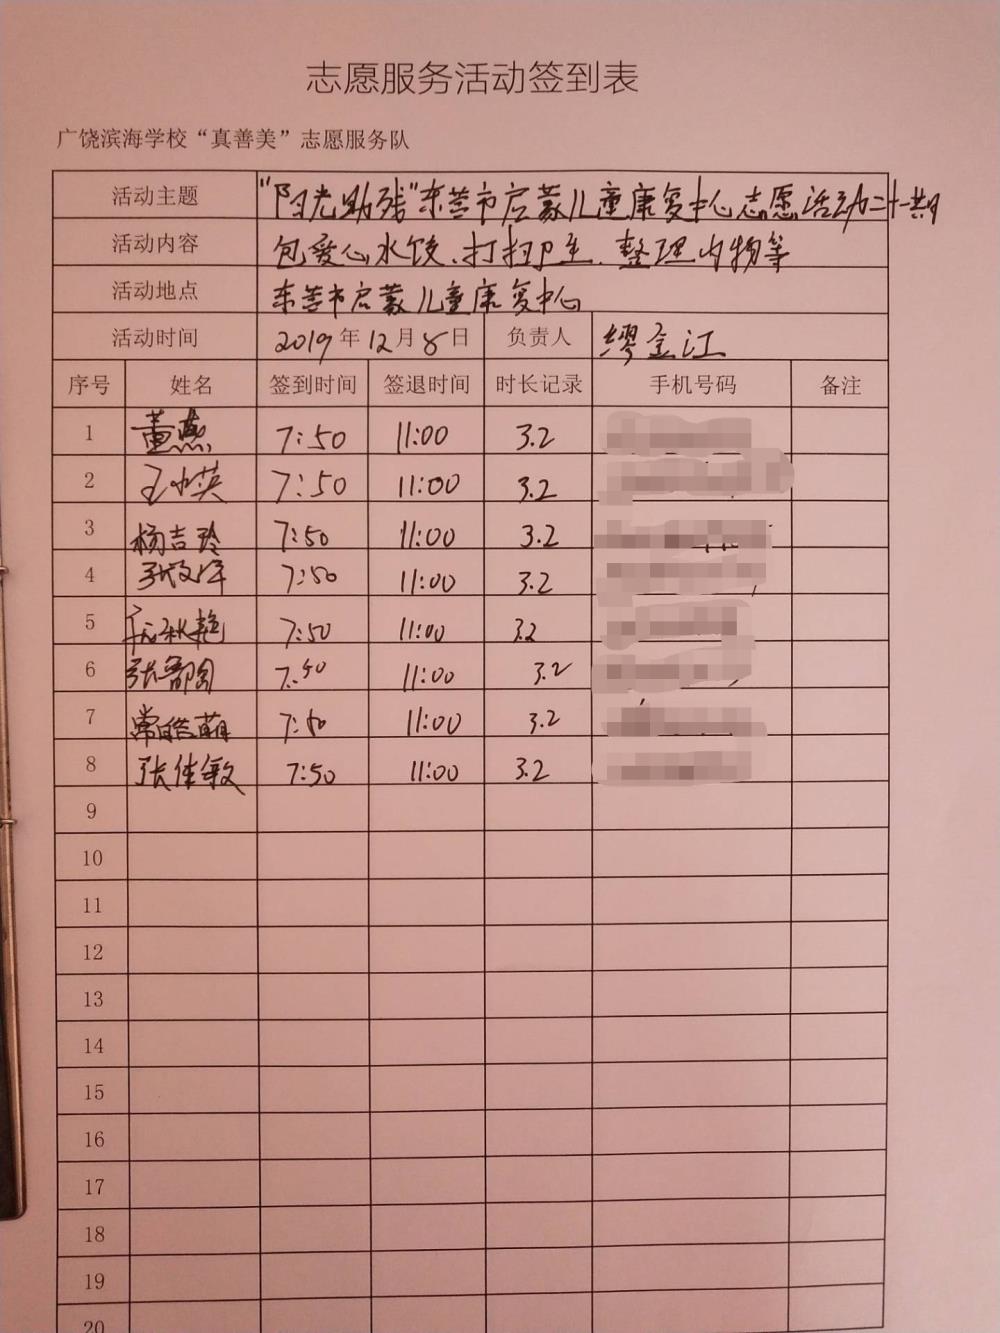 志愿服务活动签到表
广饶滨海学校“真善美”志愿服务队
活动主题 "阳光助残"东营市启蒙儿童康复中心志愿活动二十一期
活动内容 包爱心水饺、打扫卫生、整理内物等
活动地点 东营市启蒙儿童康复中心
活动时间 2019年12月8日 负责人 缪金江
序号 姓名 签到时间 签退时间 时长记录 手机号码 备注
1 董燕 7:50 11:00 3.2
2 王小英 7:50 11:00 3.2
3 杨吉玲 7:50 11:00 3.2
4 7:50 11:00 3.2
5 7:50 11:00 3.2
6 7:50 11:00 3.2
7 常皓萌 7:50 11:00 3.2
8 张佳敏 7:50 11:00 3.2
9
10
11
12
13
14
15
16
17
18
19
20